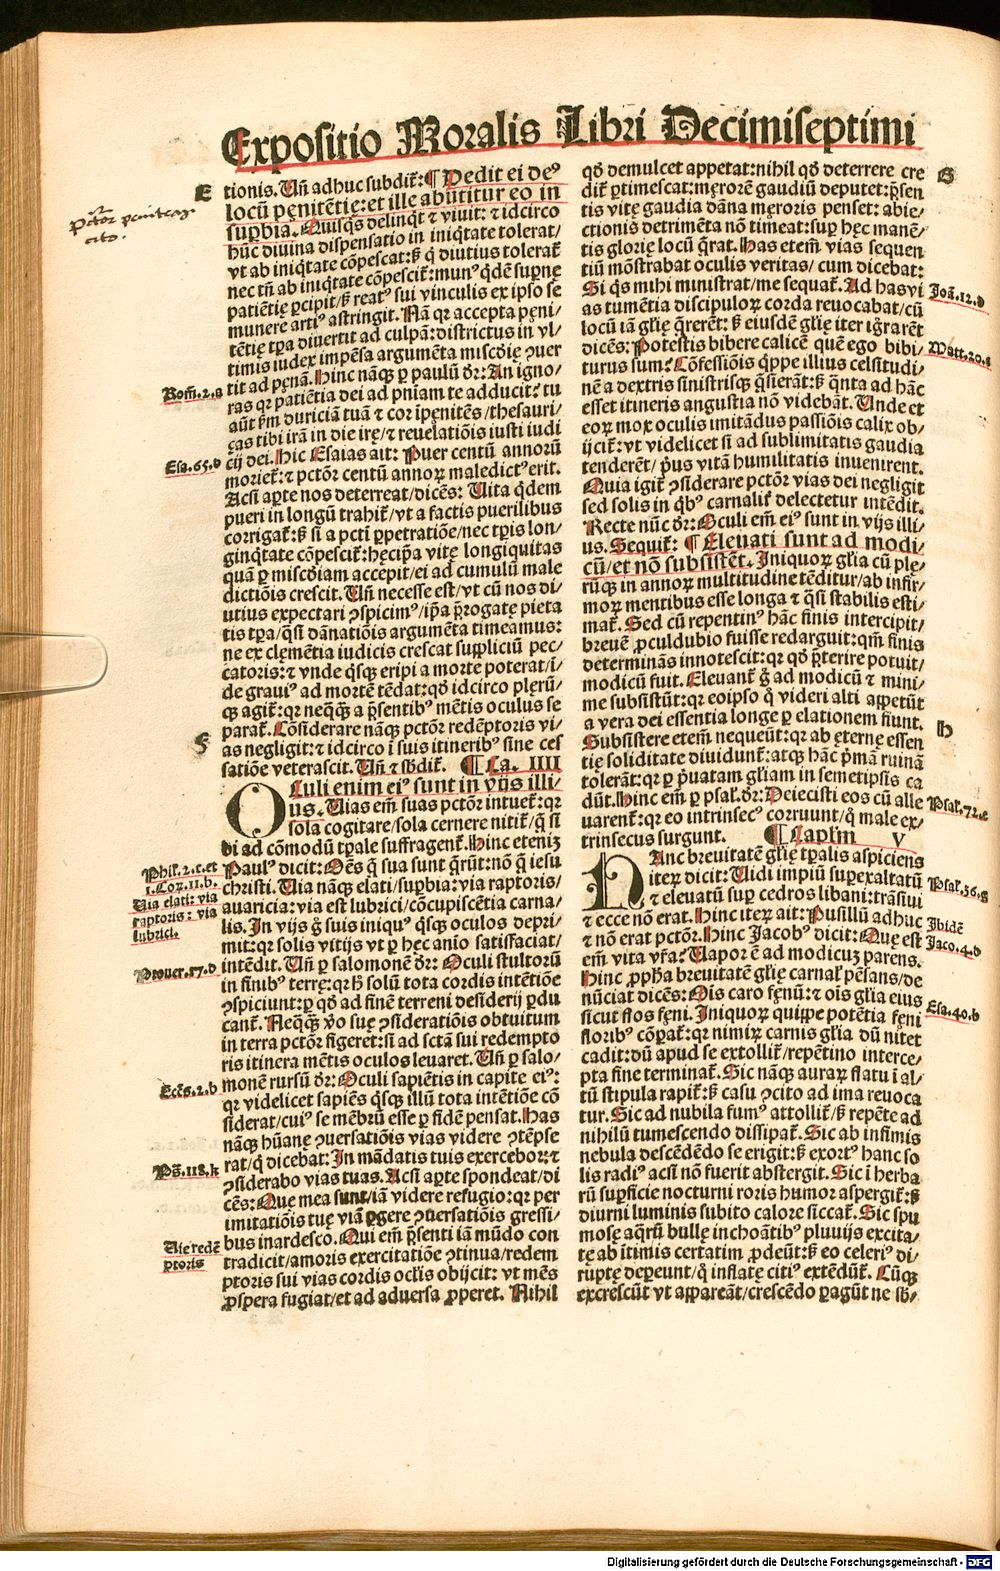 Expositio Moralis Libri Decimiseptimi
E
tionis. Uñ adhuc subdit᷑: ¶ Dedit ei de⁹
locũ pęnitẽtię: et ille abutitur eo in
suꝑbia. Quisq̃s delinq̇t ⁊ viuit: ⁊ idcirco
hũc diuina dispensatio in iniq̇tate tolerat/
vt ab iniq̇tate cõpescat: ẞ q̇ diutius tolerat᷑
nec tñ ab iniq̇tate cõpescit᷑: mun⁹ q̇dẽ suꝑnę
patiẽtię ꝑcipit/ ẞ reat⁹ sui vinculis ex ipso se
munere arti⁹ astringit. Nã qꝛ accepta pęni/
tẽtię tꝑa diuertit ad culpã: districtus in vl/
timis iudex impẽsa argumẽta miscďie ꝯuer
tit ad pęnã. Hinc nãq̨ ꝑ paulũ dꝛ: An igno/
ras qꝛ patiẽtia dei ad pniam te adducit? tu
aũt ẜm duriciã tuã ⁊ cor ĩpenitẽs/ thesauri/
ças tibi irã in die irę/ ⁊ reuelatiõis iusti iudi
cij dei. Hic Esaias ait: Puer centũ annorũ
moriet᷑: ⁊ pctõr centũ annoꝝ maledict⁹ erit.
Acsi aꝑte nos deterreat/ dicẽs: Uita q̇dem
pueri in longũ trahit᷑/ vt a factis puerilibus
corrigat᷑: ẞ si a pcti ꝑpetratiõe/ nec tꝑis lon/
ginq̇tate cõpescit᷑: hęc ip̃a vitę longiquitas
quã ꝑ miscďiam accepit/ ei ad cumulũ male
dictiõis crescit. Uñ necesse est/ vt cũ nos di/
utius expectari ꝯspicim⁹/ ip̃a p̃rogatę pieta
tis tꝑa/ q̃si dãnatiõis argumẽta timeamus:
ne ex clęmẽtia iudicis crescat suppliciũ pec/
catoris: ⁊ vnde q̇sq̨ eripi a morte poterat/ i/
de graui⁹ ad mortẽ tẽdat: qď idcirco plęrũ/
q̨ agit᷑: qꝛ neq̃q̨ a p̃sentib⁹ mẽtis oculus se
parat᷑. Cõsiderare nãq̨ pctõr redẽptoris vi/
as negligit: ⁊ idcirco ĩ suis itinerib⁹ sine ces
satiõe veterascit. Uñ ⁊ sḃdit᷑. ¶ Ca. IIII
F
OCuli enim ei⁹ sunt in vijs illi/
us. Uias em̃ suas pctõr intuet᷑: qꝛ
sola cogitare/ sola cernere nitit᷑/ q̃ si
bi ad cõmodũ tꝑale suffragent᷑. Hinc etenim
Paul⁹ dicit: Oẽs q̃ sua sunt q̃rũt: nõ q̃ iesu
christi. Uia nãq̨ elati/ suꝑbia: via raptoris/
auaricia: via est lubrici/ cõcupiscẽtia carna/
lis. In vijs g̊ suis iniqu⁹ q̇sq̨ oculos depri/
mit: qꝛ solis vitijs vt ꝑ hec anio satisfaciat/
intẽdit. Uñ ꝑ salomonẽ dꝛ: Oculi stultorũ
in finib⁹ terrę: qꝛ ḣ solũ tota cordis intẽtiõe
ꝯspiciunt: ꝑ qď ad finẽ terreni desiderij ꝑdu
cant᷑. Neq̃q̨ v̊o suę ꝯsideratiõis obtuitum
in terra pctõr figeret: si ad sctã sui redempto
ris itinera mẽtis oculos leuaret. Uñ ꝑ salo/
monẽ rursũ dꝛ: Oculi sapiẽtis in capite ei⁹:
qꝛ videlicet sapiẽs q̇sq̨ illũ tota intẽtiõe cõ
siderat/ cui⁹ se mẽbrũ esse ꝑ fidẽ pensat. Has
nãq̨ hũanę ꝯuersatiõis vias videre ꝯtẽpse
rat/ q̇ dicebat: In mãdatis tuis exercebor: ⁊
ꝯsiderabo vias tuas. Acsi aꝑte spondeat/ di
cẽs: Que mea sunt/ iã videre refugio: qꝛ per
imitatiõis tuę viã ꝑgere ꝯuersatiõis gressi/
bus inardesco. Qui em̃ p̃senti iã mũdo con
tradicit/ amoris exercitatiõe ꝯtinua/ redem
ptoris sui vias cordis ocľis obijcit: vt mẽs
ꝓspera fugiat/ et ad aduersa ꝓperet. Nihil
Rom̃. 2. a
Esa. 65. d
Phil. 2. c. et
1. Coꝝ. 11. b.
Via elati: via
raptoris: via
lubrici.
Prouer. 17. d
Eccs̃. 2. b
Ps̃. 118. k
Uie redẽ
ptoris
qď demulcet appetat: nihil qď deterrere cre
dit᷑ ꝑtimescat: męrorẽ gaudiũ deputet: p̃sen
tis vitę gaudia dãna męroris penset: abie/
ctionis detrimẽta nõ timeat: suꝑ hęc manẽ/
tis glorię locũ q̃rat. Has etem̃ vias sequen
tiũ mõstrabat oculis veritas/ cum dicebat:
Si q̇s mihi ministrat/ me sequat᷑. Ad has vi
as tumẽtia discipuloꝝ corda reuocabat/ cũ
locũ iã glię q̃rerẽt: ẞ eiusdẽ glię iter ig̃rarẽt
dicẽs: Potestis bibere calicẽ quẽ ego bibi/
turus sum? Cõfessiõis q̃ppe illius celsitudi/
nẽ a dextris sinistrisq̨ q̃sierãt: ẞ q̃nta ad hãc
esset itineris angustia nõ videbãt. Unde et
eoꝝ mox oculis imitãdus passiõis calix ob/
ijcit᷑: vt videlicet si ad sublimitatis gaudia
tenderẽt/ p̃us vitã humilitatis inuenirent.
Quia igit᷑ ꝯsiderare pctõr vias dei negligit
sed solis in q̇b⁹ carnalit᷑ delectetur intẽdit.
Recte nũc dꝛ: Oculi em̃ ei⁹ sunt in vijs illi/
us. Sequit᷑: ¶ Eleuati sunt ad modi/
cũ/ et nõ subsistẽt. Iniquoꝝ glia cũ plę/
rũq̨ in annoꝝ multitudine tẽditur/ ab infir/
moꝝ mentibus esse longa ⁊ q̃si stabilis esti/
mat᷑. Sed cũ repentin⁹ hãc finis intercipit/
breuẽ ꝓculdubio fuisse redarguit: qm̃ finis
determinãs innotescit: qꝛ qď p̃terire potuit/
modicũ fuit. Eleuant᷑ g̊ ad modicũ ⁊ mini/
me subsistũt: qꝛ eoipso q̇ videri alti appetũt
a vera dei essentia longe ꝑ elationem fiunt.
Subsistere etem̃ nequeũt: qꝛ ab ęternę essen
tię soliditate diuidunt᷑: atq̨ hãc p̃mã ruinã
tolerãt: qꝛ ꝑ p̃uatam gliam in semetipsis ca
dũt. Hinc em̃ ꝑ psal. dꝛ: Deiecisti eos cũ alle
uarent᷑: qꝛ eo intrinsec⁹ corruunt/ q̇ male ex/
trinsecus surgunt. ¶ Caplm̃ V
HAnc breuitatẽ glię tꝑalis aspiciens
iteꝝ dicit: Uidi impiũ suꝑexaltatũ
⁊ eleuatũ suꝑ cedros libani: trãsiui
⁊ ecce nõ erat. Hinc iteꝝ ait: Pusillũ adhuc
⁊ nõ erat pctõr. Hinc Jacob⁹ dicit: Quę est
em̃ vita vr̃a? Uapor ẽ ad modicuz parens.
Hinc ꝓpħa breuitatẽ glię carnal᷑ pẽsans/ de
nũciat dicẽs: Ois caro fęnũ: ⁊ ois glia eius
sicut flos fęni. Iniquoꝝ quippe potẽtia fęni
florib⁹ cõꝑat᷑: qꝛ nimiꝝ carnis glia dũ nitet
cadit: dũ apud se extollit᷑/ repẽtino interce/
pta fine terminat᷑. Sic nãq̨ auraꝝ flatu ĩ al/
tũ stipula rapit᷑: ẞ casu ꝯcito ad ima reuoca
tur. Sic ad nubila fum⁹ attollit᷑/ ẞ repẽte ad
nihilũ tumescendo dissipat᷑. Sic ab infimis
nebula descẽdẽdo se erigit: ẞ exort⁹ hanc so
lis radi⁹ acsi nõ fuerit abstergit. Sic ĩ herba
rũ suꝑficie nocturni roris humor aspergit᷑: ẞ
diurni luminis subito calore siccat᷑. Sic spu
mosę aq̃rũ bullę inchoãtib⁹ pluuijs excita/
tę ab ĩtimis certatim ꝓdeũt: ẞ eo celeri⁹ di/
ruptę deꝑeunt/ q̇ inflatę citi⁹ extẽdũt᷑. Cũq̨
excrescũt vt appareãt/ crescẽdo ꝑagũt ne sḃ/
G
Joã. 12. d
Matt. 20. a
h
Psal. 72. c
Psal. 36. g
Ibidẽ
Jaco. 4. d
Esa. 40. b
Digitalisierung gefördert durch die Deutsche Forschungsgemeinschaft - DFG